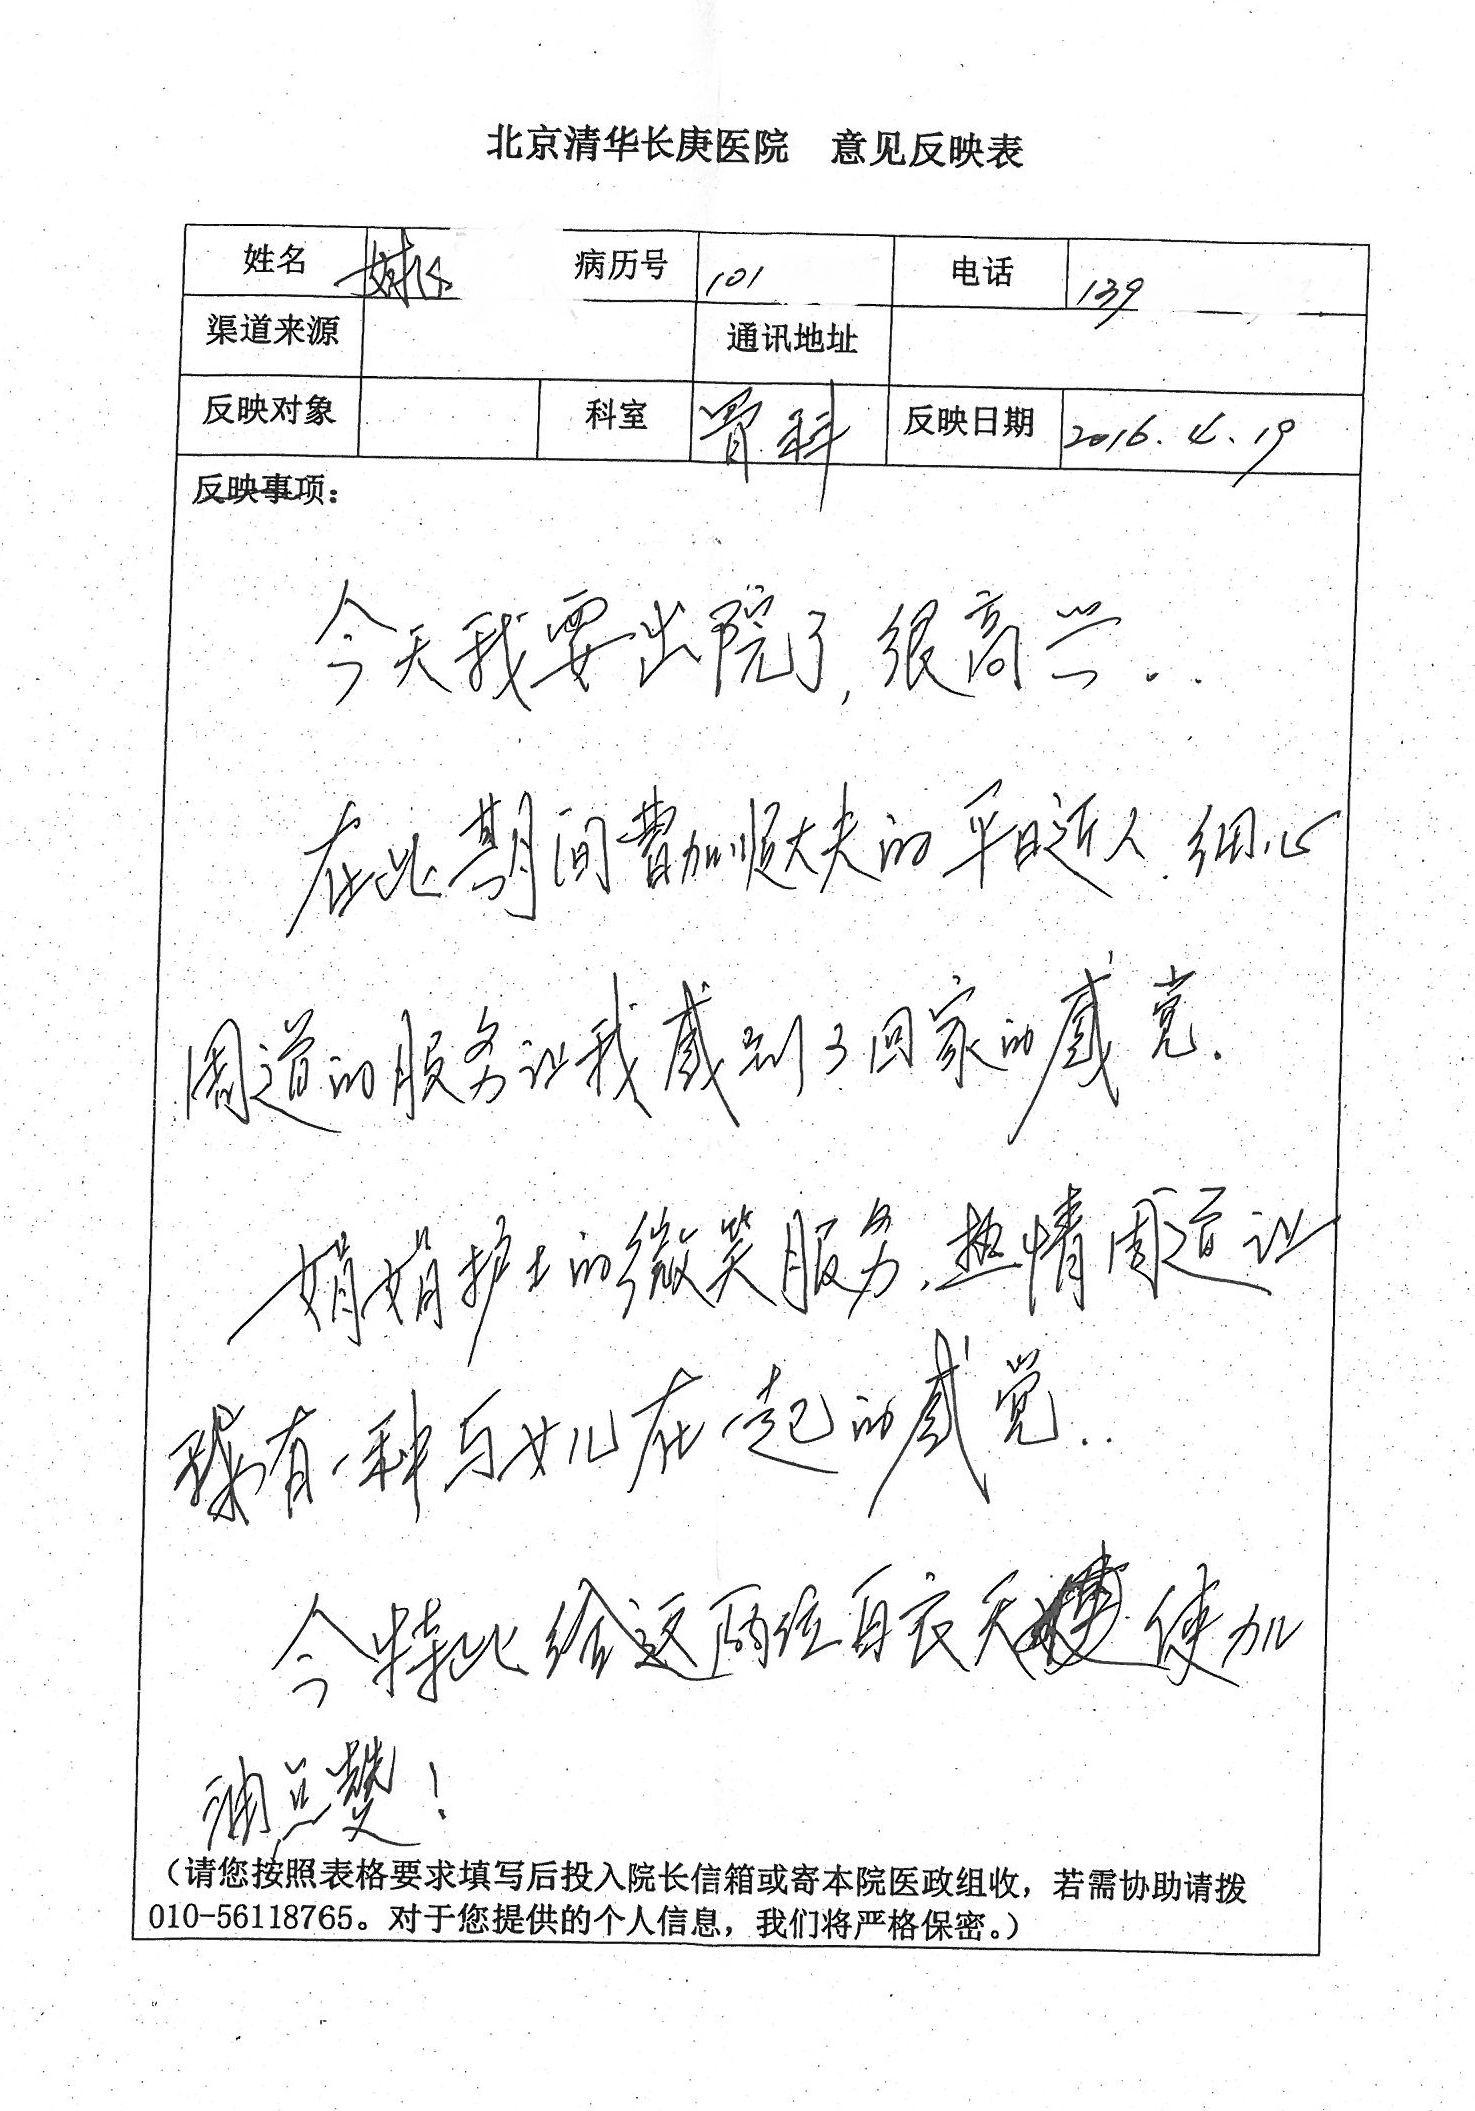 北京清华长庚医院 意见反映表
姓名 病历号 101 电话 139
渠道来源 通讯地址
反映对象 科室 骨科 反映日期 2016.4.19
反映事项：
今天我要出院了,很高兴..
在此期间费加恒大夫的平日近人.细心
周道的服务让我感到了回家的感觉.
娟娟护士的微笑服务.热情周道让
我有一种与女儿在一起的感觉..
今特此给这两位白衣天使加
油点赞!
（请您按照表格要求填写后投入院长信箱或寄本院医政组收，若需协助请拨
010-56118765。对于您提供的个人信息，我们将严格保密。）